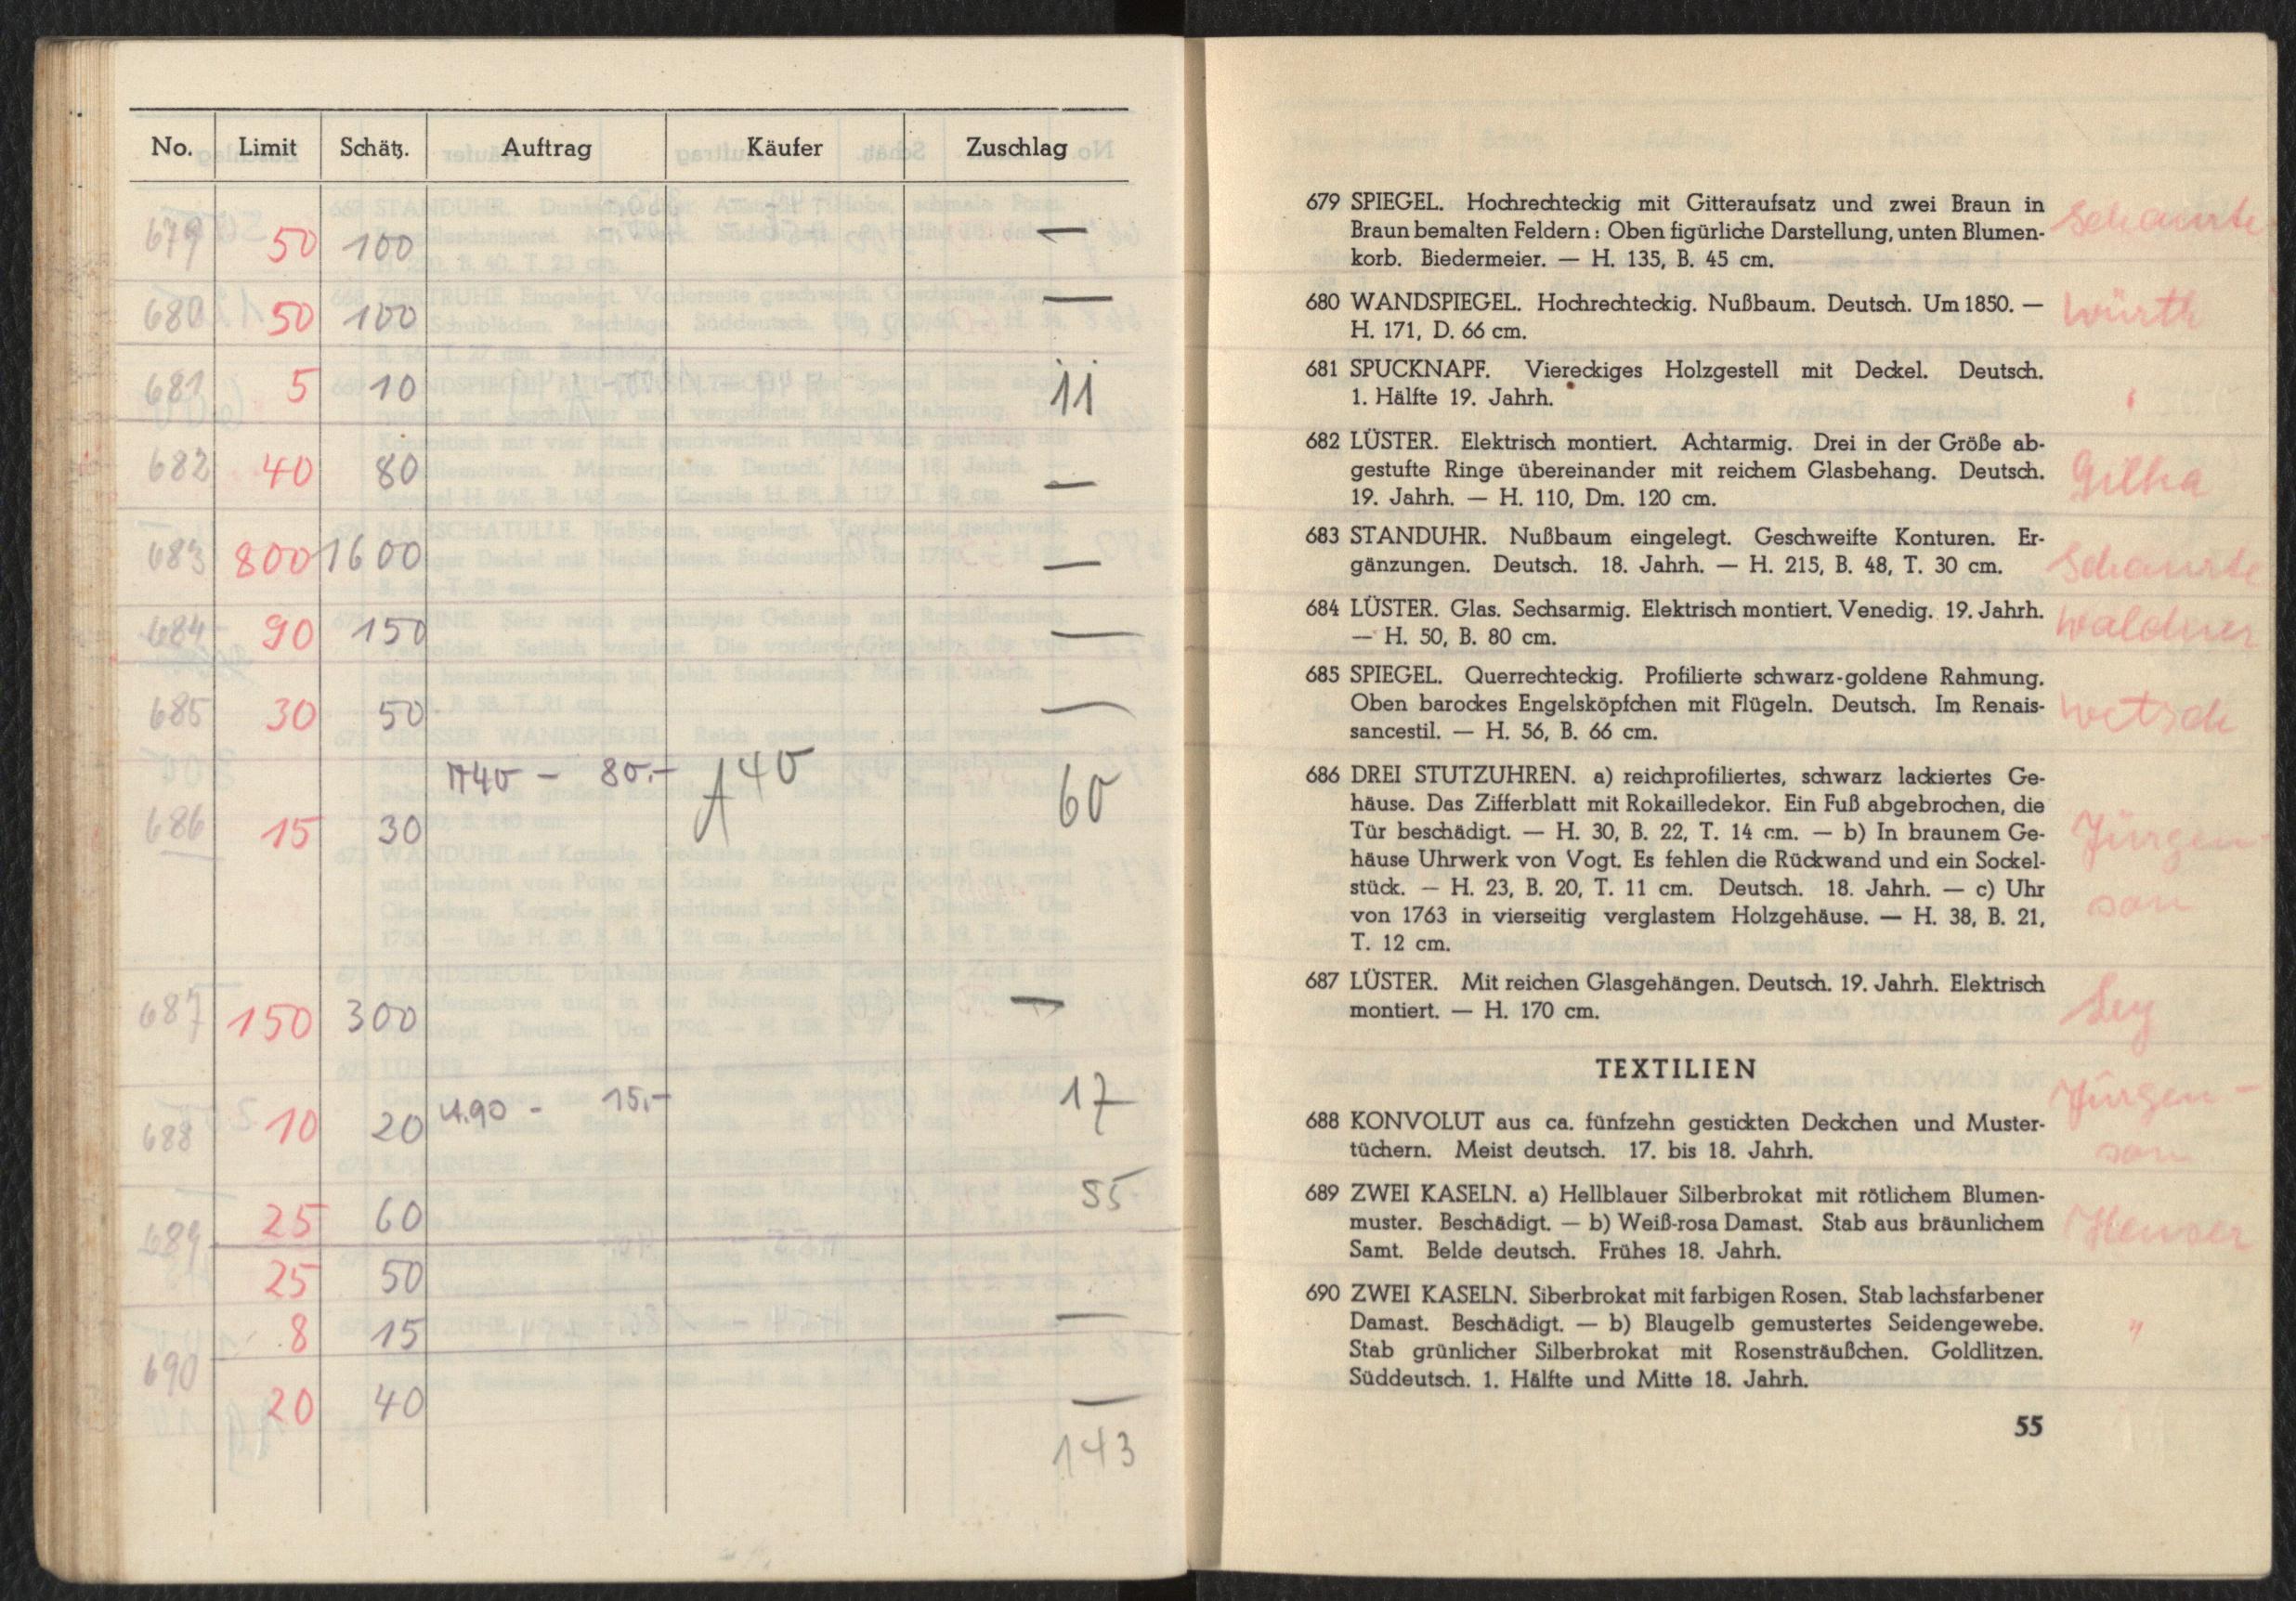 No. Limit Schätz. Auftrag Käufer Zuschlag
679 50 100 —
680 50 100 —
681 5 10 11
682 40 80 —
683 800 1600 —
684 90 150 —
685 30 50 —
686 15 30 A40 — 80.- A40 60
687 150 300 —
688 10 20 U.90 - 15.- 17
689 25 60 55
25 50
8 15 —
690
20 40 —
143
679 SPIEGEL. Hochrechteckig mit Gitteraufsatz und zwei Braun in
Braun bemalten Feldern: Oben figürliche Darstellung, unten Blumen-
korb. Biedermeier. — H. 135, B. 45 cm.
Schaurte
680 WANDSPIEGEL. Hochrechteckig. Nußbaum. Deutsch. Um 1850. —
H. 171, D. 66 cm.
Würth
681 SPUCKNAPF. Viereckiges Holzgestell mit Deckel. Deutsch.
1. Hälfte 19. Jahrh.
682 LÜSTER. Elektrisch montiert. Achtarmig. Drei in der Größe ab-
gestufte Ringe übereinander mit reichem Glasbehang. Deutsch.
19. Jahrh. — H. 110, Dm. 120 cm.
683 STANDUHR. Nußbaum eingelegt. Geschweifte Konturen. Er-
gänzungen. Deutsch. 18. Jahrh. — H. 215, B. 48, T. 30 cm.
Schaurte
684 LÜSTER. Glas. Sechsarmig. Elektrisch montiert. Venedig. 19. Jahrh.
— H. 50, B. 80 cm.
Waldner
685 SPIEGEL. Querrechteckig. Profilierte schwarz-goldene Rahmung.
Oben barockes Engelsköpfchen mit Flügeln. Deutsch. Im Renais-
sancestil. — H. 56, B. 66 cm.
Wetsch
686 DREI STUTZUHREN. a) reichprofiliertes, schwarz lackiertes Ge-
häuse. Das Zifferblatt mit Rokailledekor. Ein Fuß abgebrochen, die
Tür beschädigt. — H. 30, B. 22, T. 14 cm. — b) In braunem Ge-
häuse Uhrwerk von Vogt. Es fehlen die Rückwand und ein Sockel-
stück. — H. 23, B. 20, T. 11 cm. Deutsch. 18. Jahrh. — c) Uhr
von 1763 in vierseitig verglastem Holzgehäuse. — H. 38, B. 21,
T. 12 cm.
Jürgen-
son
687 LÜSTER. Mit reichen Glasgehängen. Deutsch. 19. Jahrh. Elektrisch
montiert. — H. 170 cm.
Ley
TEXTILIEN
688 KONVOLUT aus ca. fünfzehn gestickten Deckchen und Muster-
tüchern. Meist deutsch. 17. bis 18. Jahrh.
Jürgen-
son
689 ZWEI KASELN. a) Hellblauer Silberbrokat mit rötlichem Blumen-
muster. Beschädigt. — b) Weiß-rosa Damast. Stab aus bräunlichem
Samt. Belde deutsch. Frühes 18. Jahrh.
Heuser
690 ZWEI KASELN. Siberbrokat mit farbigen Rosen. Stab lachsfarbener
Damast. Beschädigt. — b) Blaugelb gemustertes Seidengewebe.
Stab grünlicher Silberbrokat mit Rosensträußchen. Goldlitzen.
Süddeutsch. 1. Hälfte und Mitte 18. Jahrh.
"
55